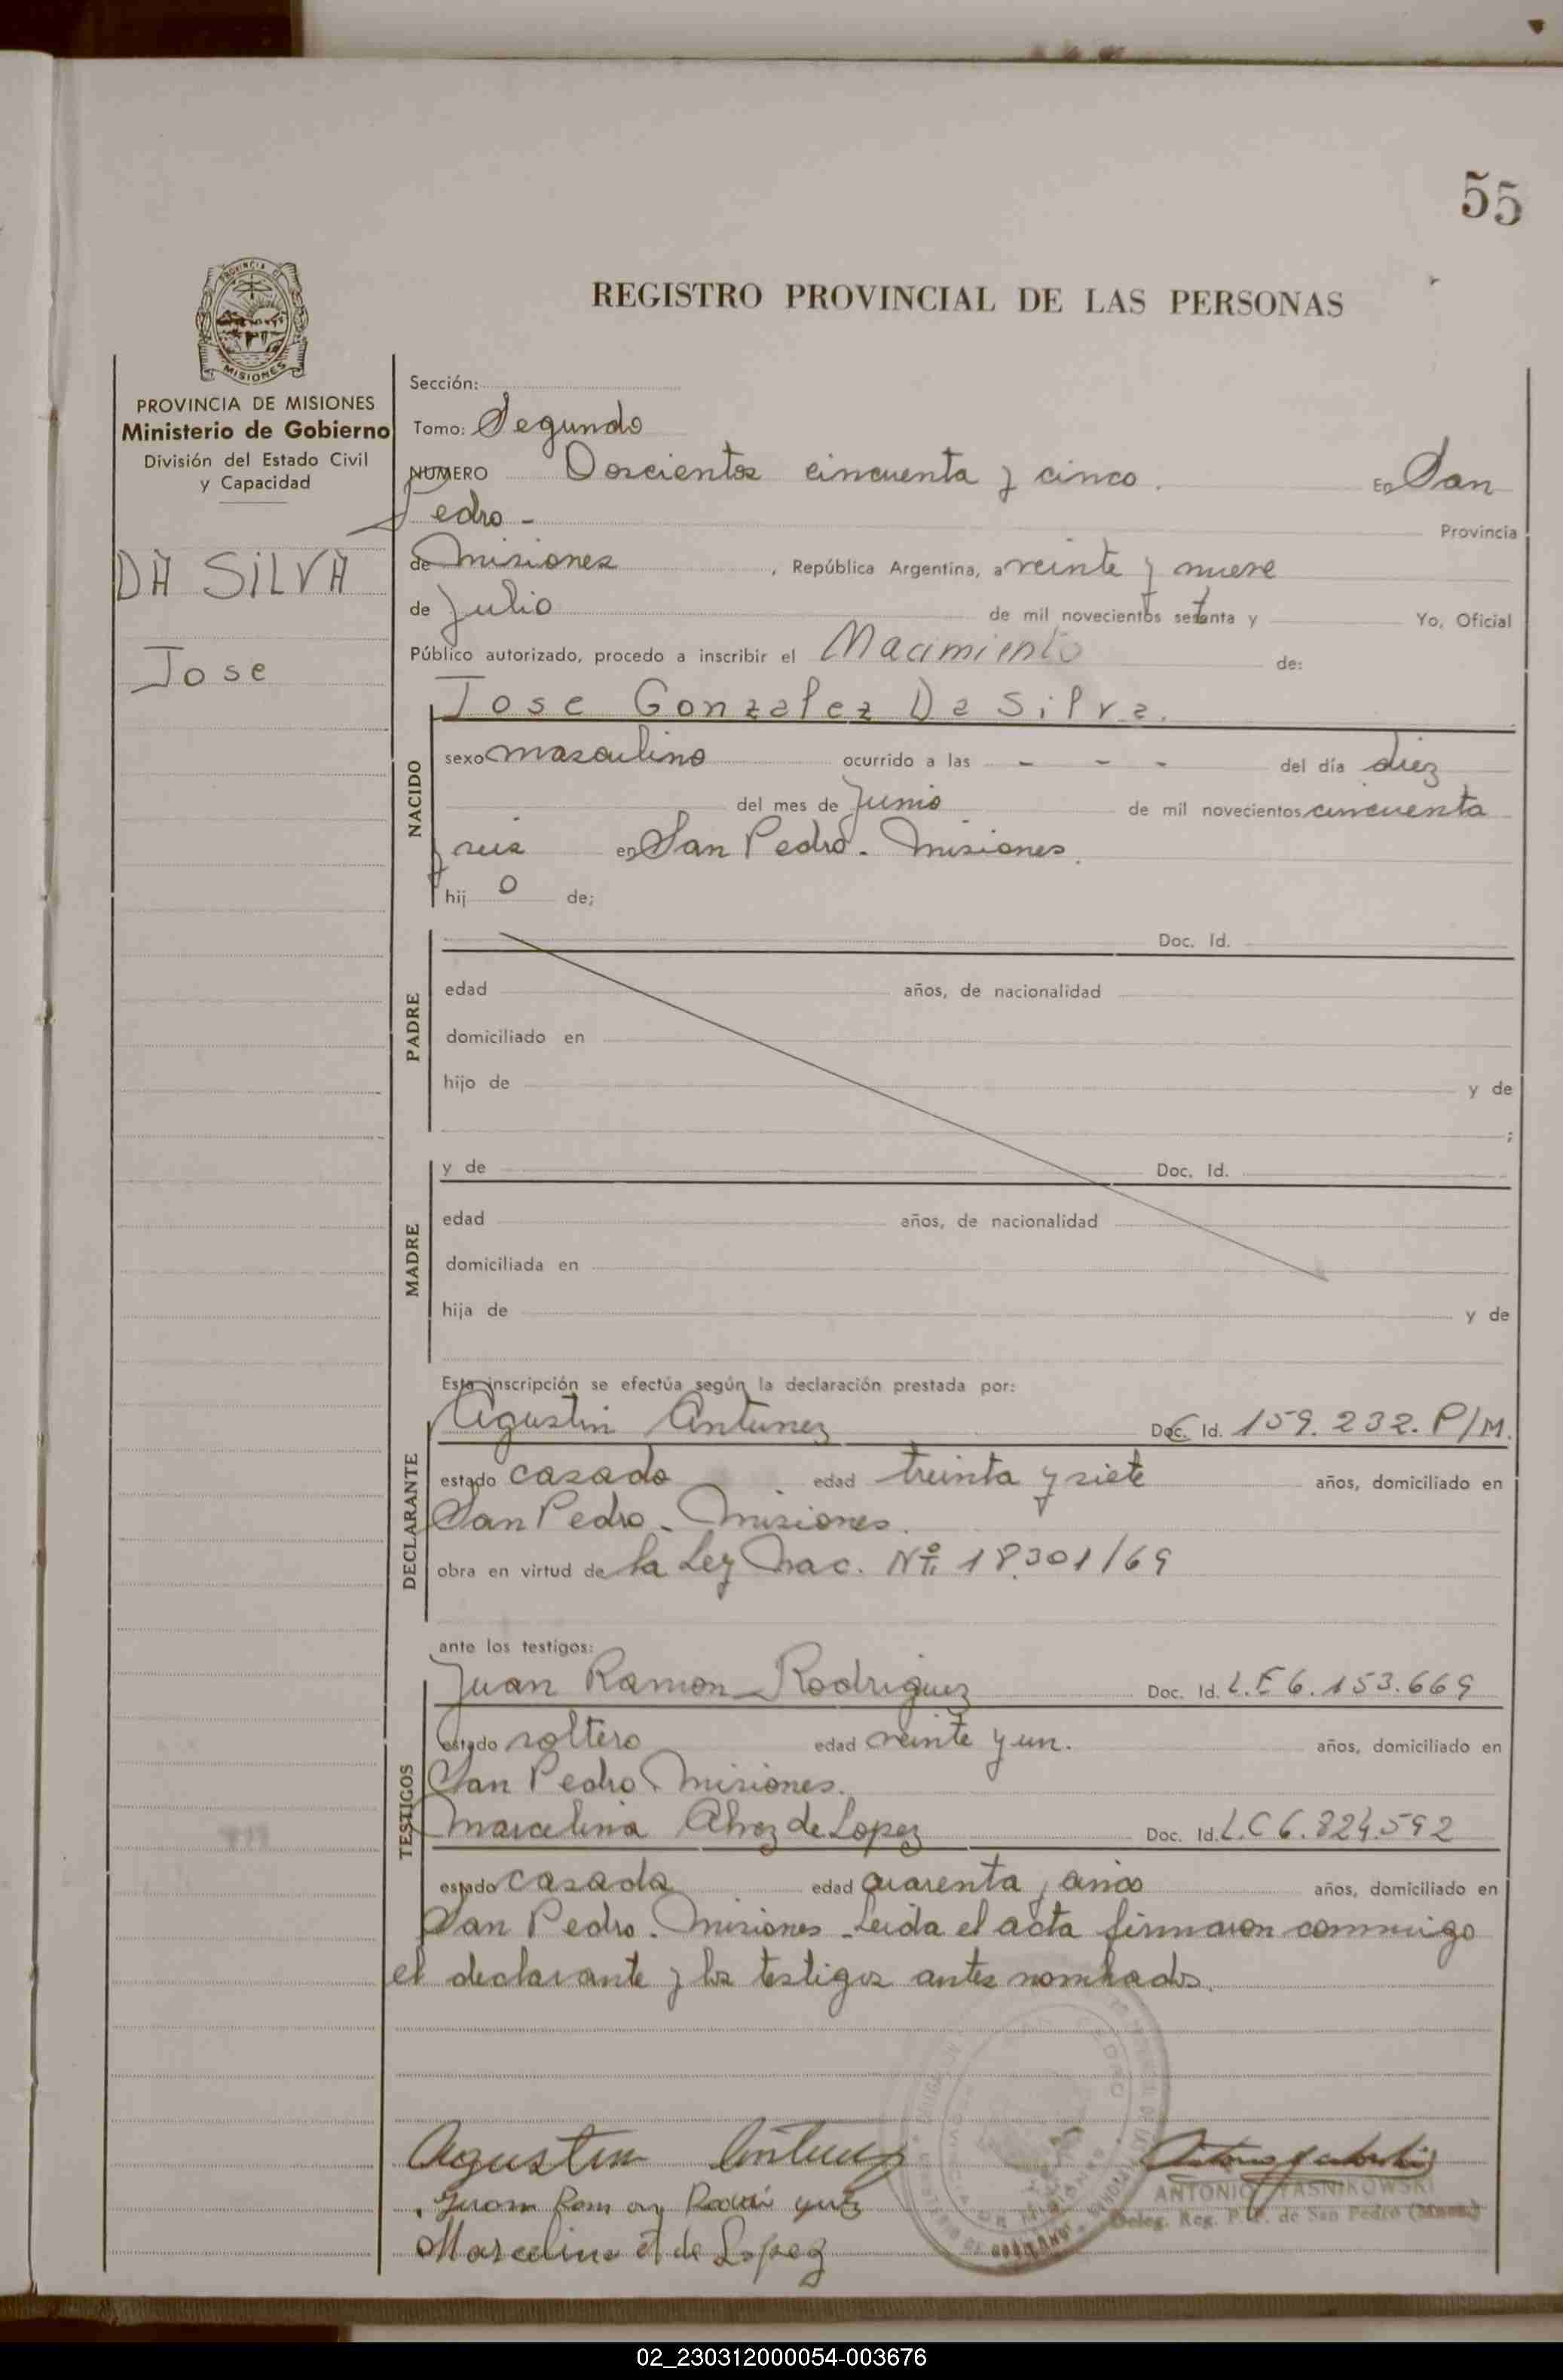 55
PROVINCIA DE
MISIONES
REGISTRO PROVINCIAL DE LAS PERSONAS
PROVINCIA DE MISIONES
Ministerio de Gobierno
División del Estado Civil
y Capacidad
DA SILVA
Jose
Sección:
Tomo: Segundo
NUMERO Doscientos cincuenta y cinco. En San
Pedro - Provincia
de Misiones, República Argentina, a veinte y nueve
de Julio de mil novecientos setenta y Yo, Oficial
Público autorizado, procedo a inscribir el Nacimiento de:
Jose Gonzalez Da Silva.
NACIDO
sexo masculino ocurrido a las - - - del día diez
del mes de Junio de mil novecientos cincuenta
y seis en San Pedro - Misiones.
hij o de;
PADRE
Doc. Id.
edad años, de nacionalidad
domiciliado en
hijo de y de
;
MADRE
y de Doc. Id.
edad años, de nacionalidad
domiciliada en
hija de y de
Esta inscripción se efectúa según la declaración prestada por:
DECLARANTE
Agustin Antunez Doc. Id. 159.232. P/M.
estado casado edad treinta y siete años, domiciliado en
San Pedro - Misiones.
obra en virtud de la Ley Nac. Nº 18.301/69
ante los testigos:
TESTIGOS
Juan Ramon Rodriguez Doc. Id. L.E 6.153.669
estado soltero edad veinte y un. años, domiciliado en
San Pedro Misiones.
Marcelina Alvez de Lopez Doc. Id. L.C 6.824.592
estado casada edad cuarenta y cinco años, domiciliado en
San Pedro. Misiones - Leida el acta firmaron conmigo
el declarante y los testigos antes nombrados.
Agustin Antunez
Juan Ramon Rodriguez
Marcelina A de Lopez
ANTONIO YASNIKOWSKI
Deleg. Reg. P. P. de San Pedro (Mnes.)
02_230312000054-003676